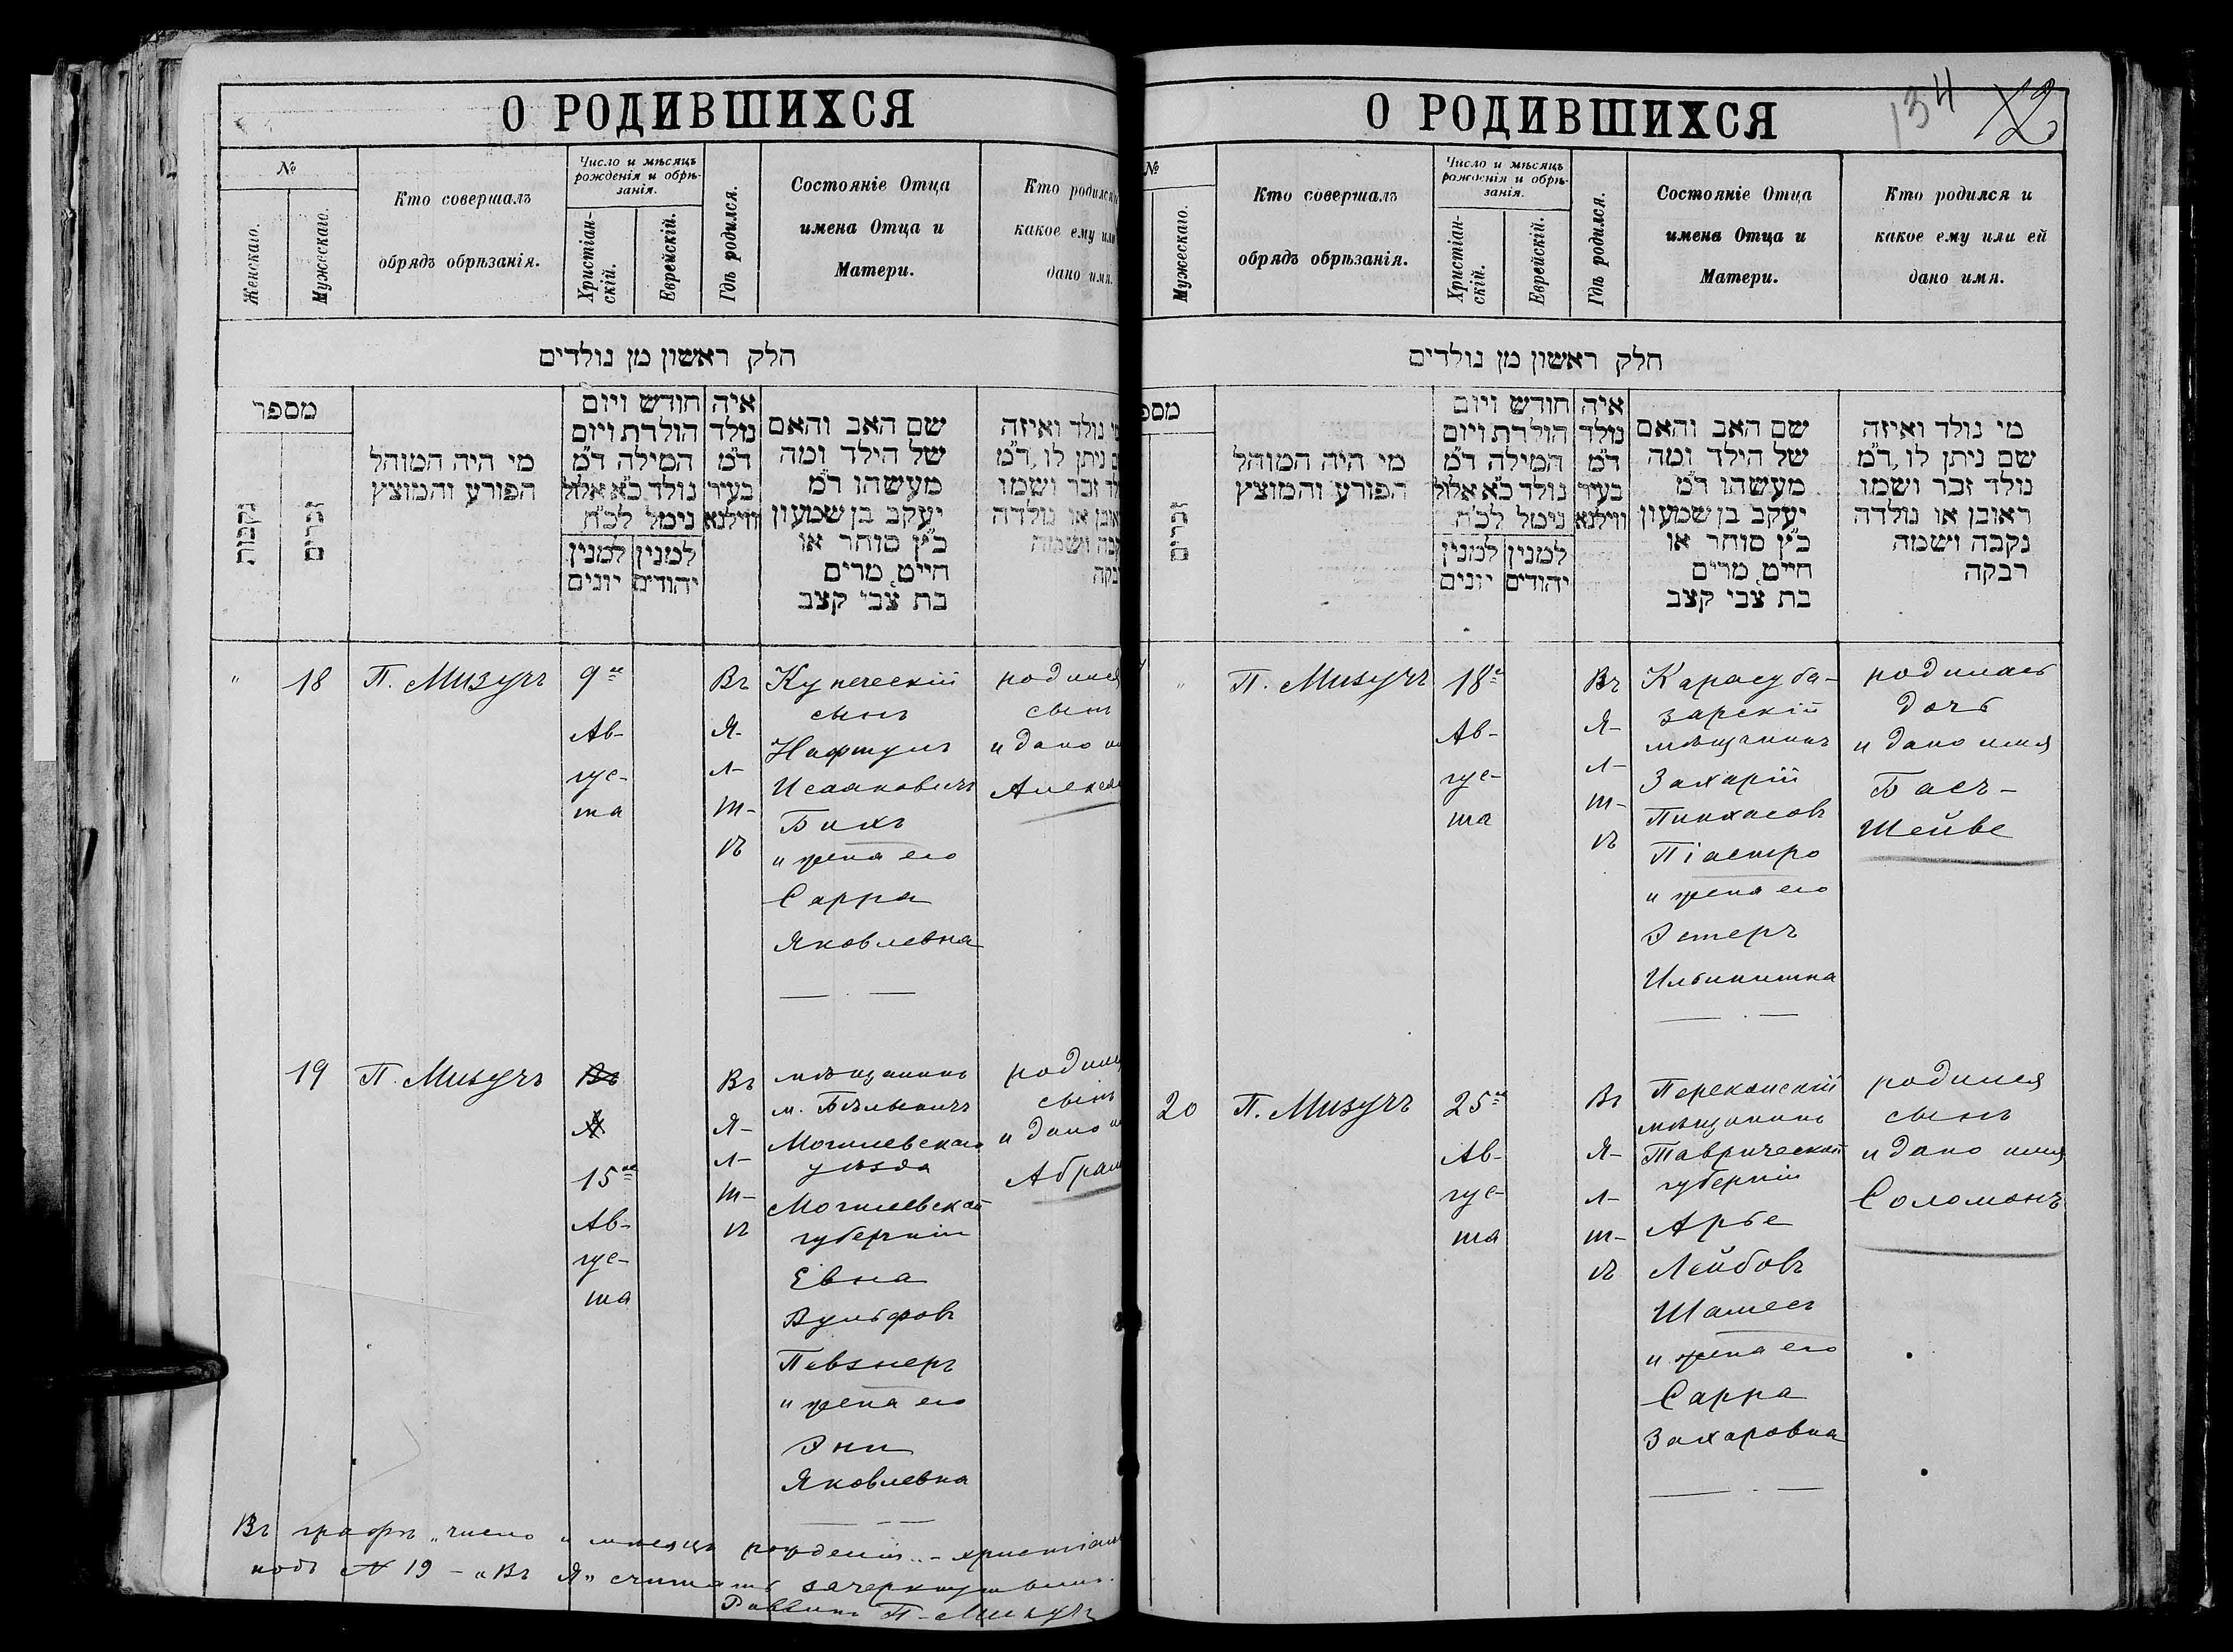 О РОДИВШИХСЯ
№
Женскаго.
Мужескаго.
Кто совершалъ
обрядъ обрѣзанія.
Число и мѣсяцъ
рожденія и обрѣ-
занія.
Христіан-
скій.
Еврейскій.
Гдѣ родился.
Состояніе Отца
имена Отца и
Матери.
Кто родился
какое ему или
дано имя.
חלק ראשון מן נולדים
מספר
נקבות
זכרים
מי היה המוהל
הפורע והמוצץ
חודש ויום
הולדת ויום
המילה ד״מ
נולד כ״א אלול
נימל לכ״ח
למנין יהודים
למנין יונים
איה
נולד
ד״מ
בעיר
ווילנא
שם האב והאם
של הילד ומה
מעשהו ד״מ
יעקב בן שמעון
כ״ץ סוחר או
חייט, מרים
בת צבי קצב
נולד ואיזה
ניתן לו, ד״מ
זכר ושמו
או נולדה
ושמה
"
18
П. Мизучъ
9ое
Ав-
гус-
та
Въ
Я-
л-
т-
ѣ
Купеческій
сынъ
Нафтулъ
Исааковичъ
Бихъ
и жена его
Сарра
Яковлевна
родился
сынъ
и дано
19
П. Мизучъ
Въ
Я
15ое
Ав-
гус-
та
Въ
Я-
л-
т-
ѣ
мѣщанинъ
м. Бѣлыничъ
Могилевскаго
уѣзда
Могилевской
губерніи
Евна
Вульфовъ
Певзнеръ
и жена его
Эни
Яковлевна
сынъ
и дано
Абрам
Въ графѣ „число и мѣсяцъ рожденія" - христіан
подъ № 19 - „Въ Я" считать зачеркнутыми.
Раввинъ П. Мизучъ
134
12
О РОДИВШИХСЯ
№
Мужескаго.
Кто совершалъ
обрядъ обрѣзанія.
Число и мѣсяцъ
рожденія и обрѣ-
занія.
Христіан-
скій.
Еврейскій.
Гдѣ родился.
Состояніе Отца
имена Отца и
Матери.
Кто родился и
какое ему или ей
дано имя.
חלק ראשון מן נולדים
זכרים
מי היה המוהל
הפורע והמוצץ
חודש ויום
הולדת ויום
המילה ד״מ
נולד כ״א אלול
נימל לכ״ח
למנין יהודים
למנין יונים
איה
נולד
ד״מ
בעיר
ווילנא
שם האב והאם
של הילד ומה
מעשהו ד״מ
יעקב בן שמעון
כ״ץ סוחר או
חייט, מרים
בת צבי קצב
מי נולד ואיזה
שם ניתן לו, ד״מ
נולד זכר ושמו
ראובן או נולדה
נקבה ושמה
רבקה
"
П. Мизучъ
18е
Ав-
гус-
та
Въ
Я-
л-
т-
ѣ
Карасуба-
зарскій
мѣщанинъ
Захарій
Пинхасовъ
Піастро
и жена его
Эстеръ
Ильинишна
родилась
дочь
и дано имя
Басъ-
Шейве
20
П. Мизучъ
25ое
Ав-
гус-
та
Въ
Я-
л-
т-
ѣ
Перекопскій
мѣщанинъ
Таврической
губерніи
Арье
Лейбовъ
Шамесъ
и жена его
Сарра
Захаровна
родился
сынъ
и дано имя
Соломонъ